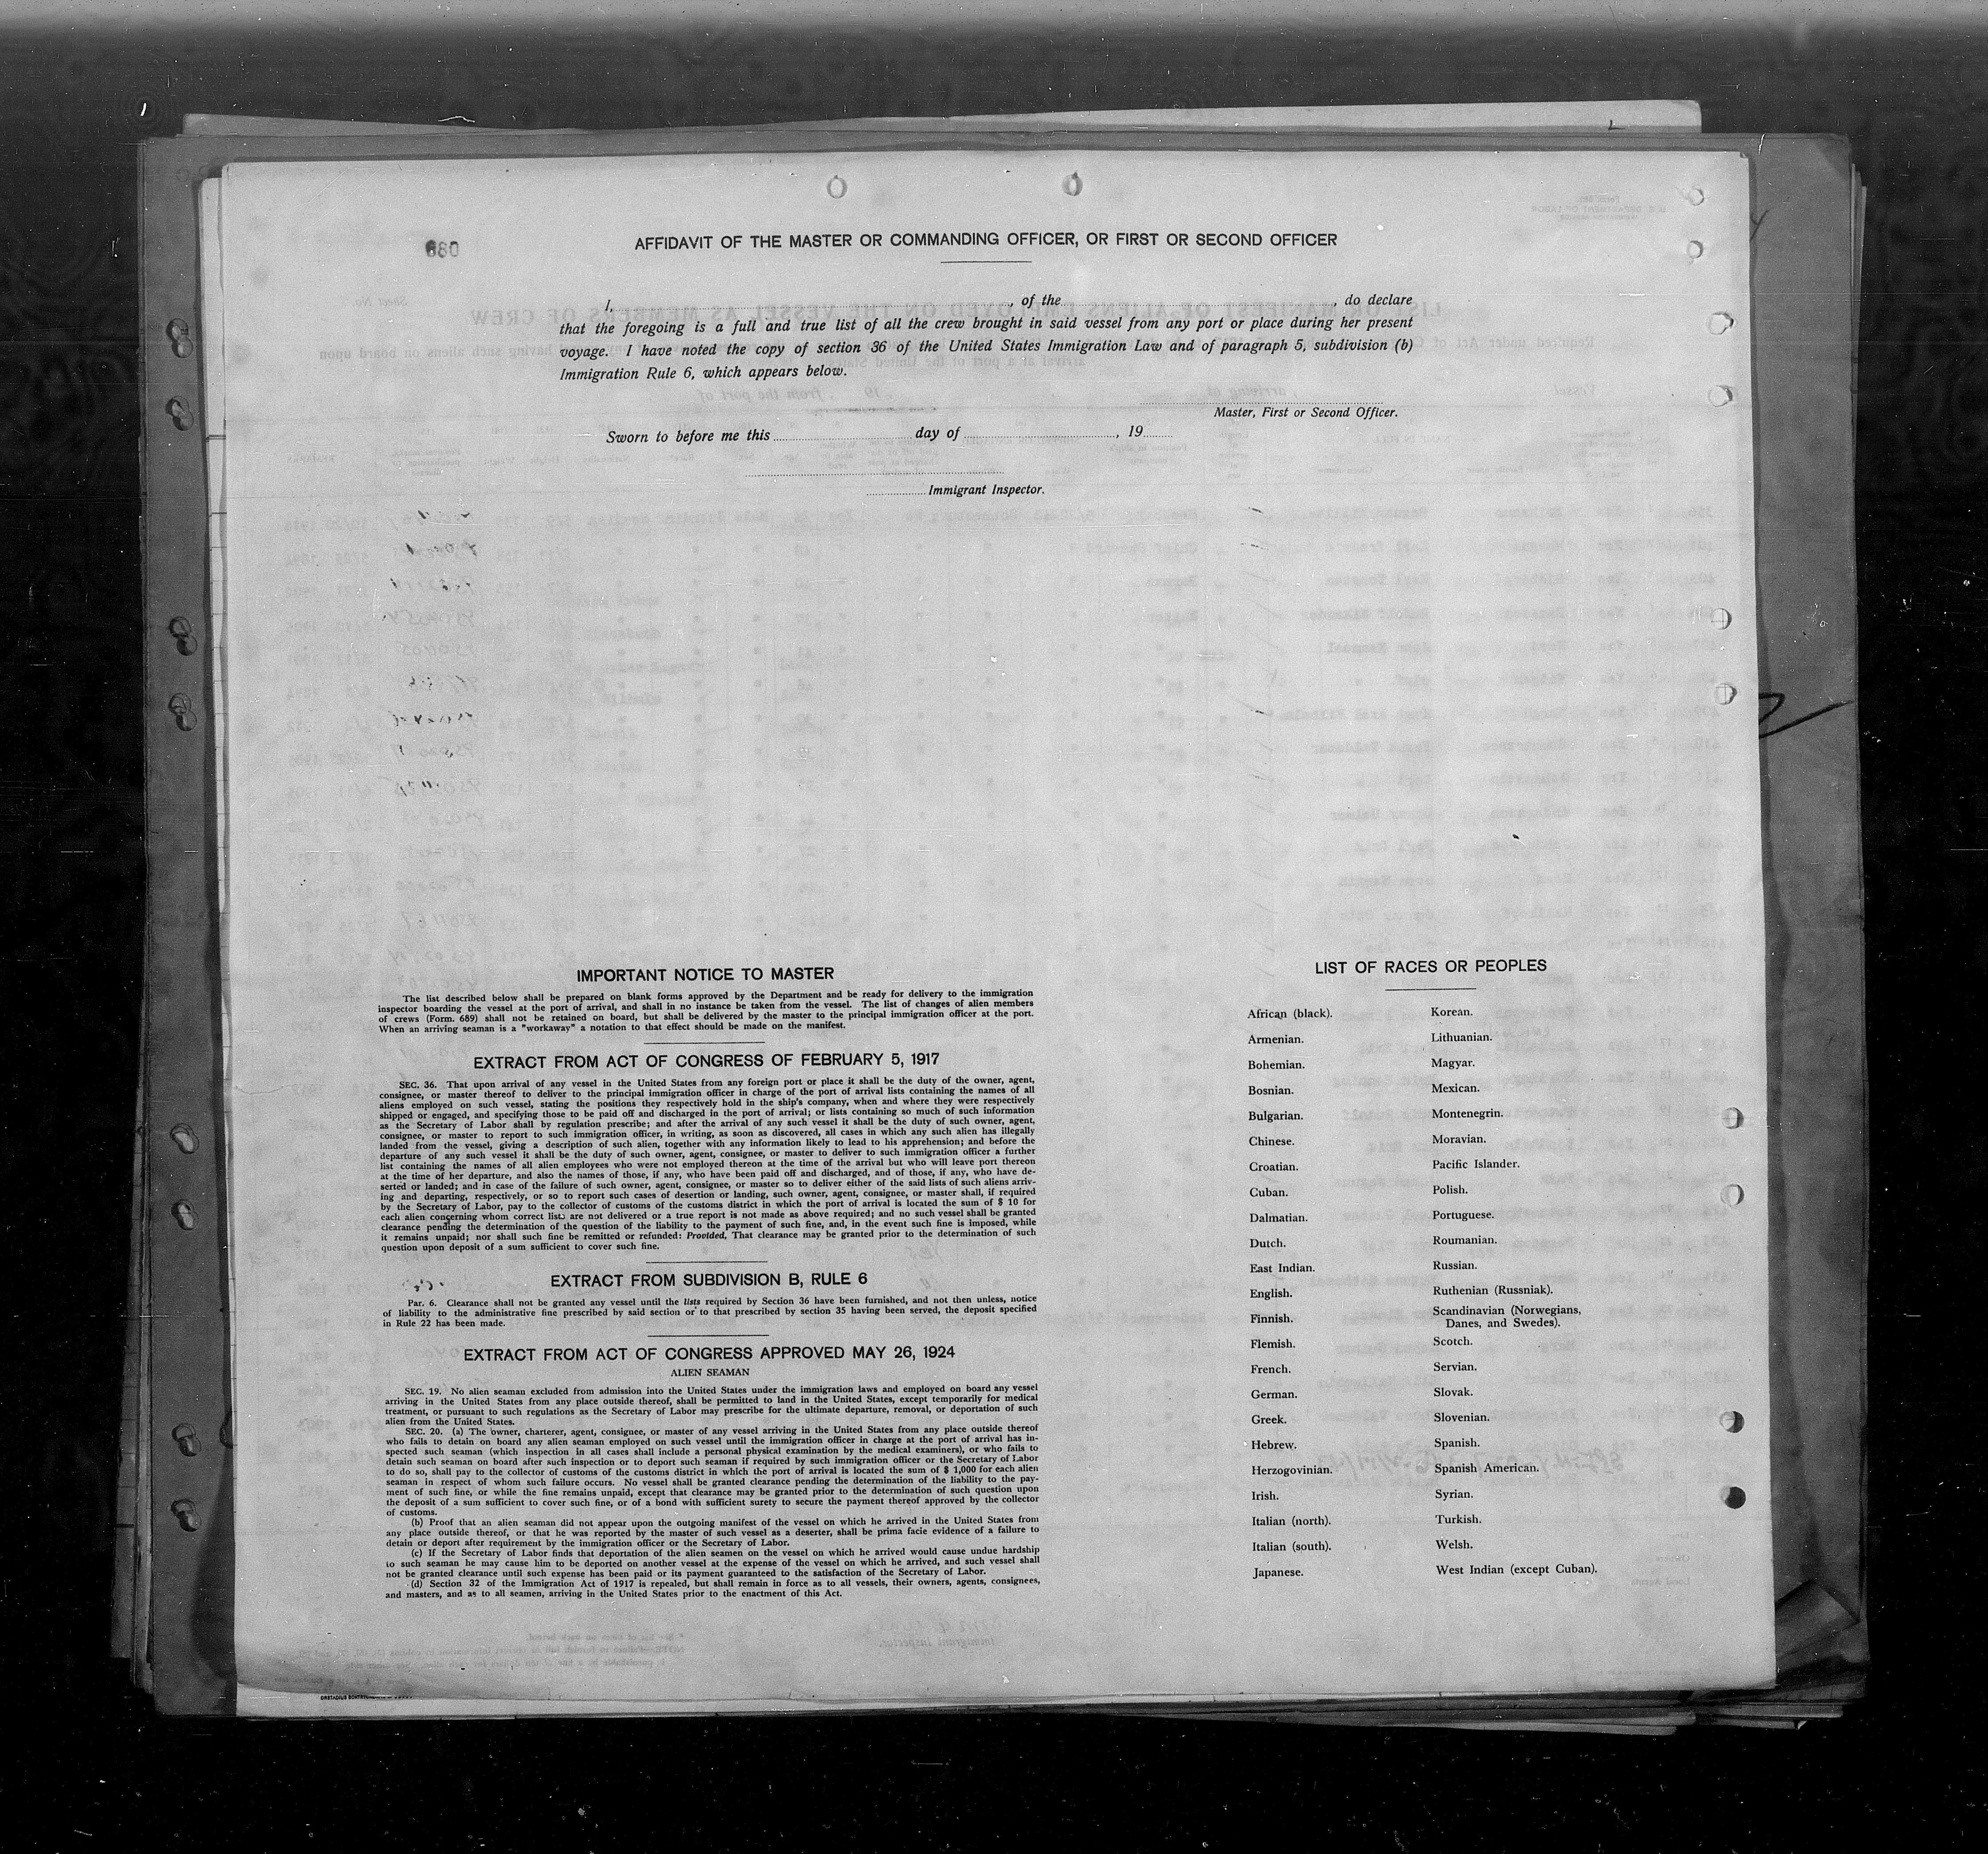 680
AFFIDAVIT OF THE MASTER OR COMMANDING OFFICER, OR FIRST OR SECOND OFFICER
I, , of the , do declare
that the foregoing is a full and true list of all the crew brought in said vessel from any port or place during her present
voyage. I have noted the copy of section 36 of the United States Immigration Law and of paragraph 5, subdivision (b)
Immigration Rule 6, which appears below.
Master, First or Second Officer.
Sworn to before me this day of , 19
Immigrant Inspector.
IMPORTANT NOTICE TO MASTER
The list described below shall be prepared on blank forms approved by the Department and be ready for delivery to the immigration
inspector boarding the vessel at the port of arrival, and shall in no instance be taken from the vessel. The list of changes of alien members
of crews (Form. 689) shall not be retained on board, but shall be delivered by the master to the principal immigration officer at the port.
When an arriving seaman is a "workaway" a notation to that effect should be made on the manifest.
EXTRACT FROM ACT OF CONGRESS OF FEBRUARY 5, 1917
SEC. 36. That upon arrival of any vessel in the United States from any foreign port or place it shall be the duty of the owner, agent,
consignee, or master thereof to deliver to the principal immigration officer in charge of the port of arrival lists containing the names of all
aliens employed on such vessel, stating the positions they respectively hold in the ship's company, when and where they were respectively
shipped or engaged, and specifying those to be paid off and discharged in the port of arrival; or lists containing so much of such information
as the Secretary of Labor shall by regulation prescribe; and after the arrival of any such vessel it shall be the duty of such owner, agent,
consignee, or master to report to such immigration officer, in writing, as soon as discovered, all cases in which any such alien has illegally
landed from the vessel, giving a description of such alien, together with any information likely to lead to his apprehension; and before the
departure of any such vessel it shall be the duty of such owner, agent, consignee, or master to deliver to such immigration officer a further
list containing the names of all alien employees who were not employed thereon at the time of the arrival but who will leave port thereon
at the time of her departure, and also the names of those, if any, who have been paid off and discharged, and of those, if any, who have de-
serted or landed; and in case of the failure of such owner, agent, consignee, or master so to deliver either of the said lists of such aliens arriv-
ing and departing, respectively, or so to report such cases of desertion or landing, such owner, agent, consignee, or master shall, if required
by the Secretary of Labor, pay to the collector of customs of the customs district in which the port of arrival is located the sum of $ 10 for
each alien concerning whom correct lists are not delivered or a true report is not made as above required; and no such vessel shall be granted
clearance pending the determination of the question of the liability to the payment of such fine, and, in the event such fine is imposed, while
it remains unpaid; nor shall such fine be remitted or refunded: Provided, That clearance may be granted prior to the determination of such
question upon deposit of a sum sufficient to cover such fine.
EXTRACT FROM SUBDIVISION B, RULE 6
Par. 6. Clearance shall not be granted any vessel until the lists required by Section 36 have been furnished, and not then unless, notice
of liability to the administrative fine prescribed by said section or to that prescribed by section 35 having been served, the deposit specified
in Rule 22 has been made.
EXTRACT FROM ACT OF CONGRESS APPROVED MAY 26, 1924
ALIEN SEAMAN
SEC. 19. No alien seaman excluded from admission into the United States under the immigration laws and employed on board any vessel
arriving in the United States from any place outside thereof, shall be permitted to land in the United States, except temporarily for medical
treatment, or pursuant to such regulations as the Secretary of Labor may prescribe for the ultimate departure, removal, or deportation of such
alien from the United States.
SEC. 20. (a) The owner, charterer, agent, consignee, or master of any vessel arriving in the United States from any place outside thereof
who fails to detain on board any alien seaman employed on such vessel until the immigration officer in charge at the port of arrival has in-
spected such seaman (which inspection in all cases shall include a personal physical examination by the medical examiners), or who fails to
detain such seaman on board after such inspection or to deport such seaman if required by such immigration officer or the Secretary of Labor
to do so, shall pay to the collector of customs of the customs district in which the port of arrival is located the sum of $ 1,000 for each alien
seaman in respect of whom such failure occurs. No vessel shall be granted clearance pending the determination of the liability to the pay-
ment of such fine, or while the fine remains unpaid, except that clearance may be granted prior to the determination of such question upon
the deposit of a sum sufficient to cover such fine, or of a bond with sufficient surety to secure the payment thereof approved by the collector
of customs.
(b) Proof that an alien seaman did not appear upon the outgoing manifest of the vessel on which he arrived in the United States from
any place outside thereof, or that he was reported by the master of such vessel as a deserter, shall be prima facie evidence of a failure to
detain or deport after requirement by the immigration officer or the Secretary of Labor.
(c) If the Secretary of Labor finds that deportation of the alien seamen on the vessel on which he arrived would cause undue hardship
to such seaman he may cause him to be deported on another vessel at the expense of the vessel on which he arrived, and such vessel shall
not be granted clearance until such expense has been paid or its payment guaranteed to the satisfaction of the Secretary of Labor.
(d) Section 32 of the Immigration Act of 1917 is repealed, but shall remain in force as to all vessels, their owners, agents, consignees,
and masters, and as to all seamen, arriving in the United States prior to the enactment of this Act.
LIST OF RACES OR PEOPLES
African (black).
Armenian.
Bohemian.
Bosnian.
Bulgarian.
Chinese.
Croatian.
Cuban.
Dalmatian.
Dutch.
East Indian.
English.
Finnish.
Flemish.
French.
German.
Greek.
Hebrew.
Herzogovinian.
Irish.
Italian (north).
Italian (south).
Japanese.
Korean.
Lithuanian.
Magyar.
Mexican.
Montenegrin.
Moravian.
Pacific Islander.
Polish.
Portuguese.
Roumanian.
Russian.
Ruthenian (Russniak).
Scandinavian (Norwegians,
Danes, and Swedes).
Scotch.
Servian.
Slovak.
Slovenian.
Spanish.
Spanish American.
Syrian.
Turkish.
Welsh.
West Indian (except Cuban).